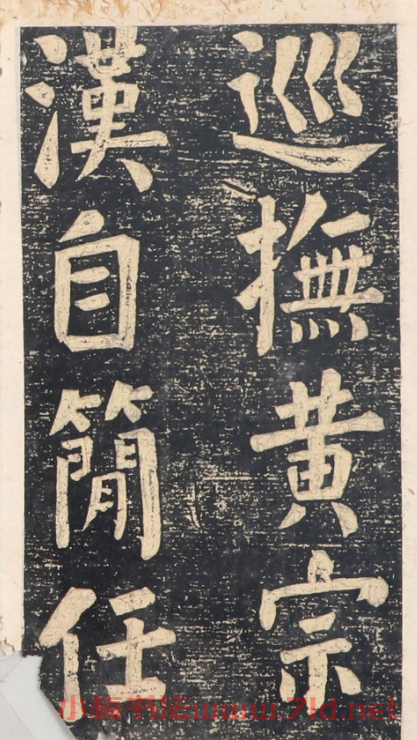 巡撫黄宗
漢自簡任
小楷书法www.7ld.net